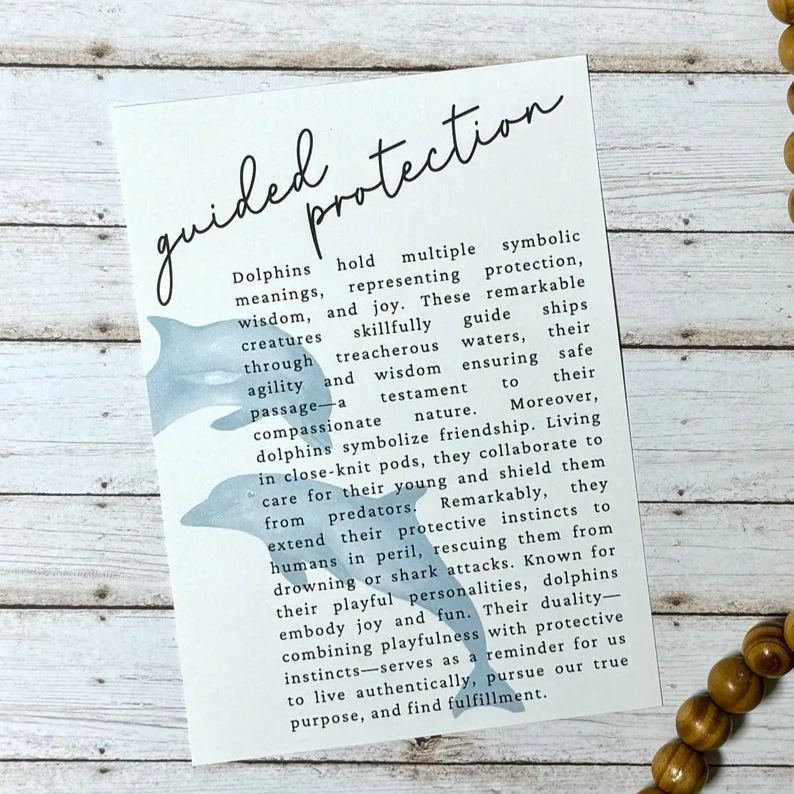 guided
protection
Dolphins hold multiple symbolic
meanings, representing protection,
wisdom, and joy. These remarkable
creatures skillfully guide ships
through treacherous waters, their
agility and wisdom ensuring safe
passage—a testament to their
compassionate nature. Moreover,
dolphins symbolize friendship. Living
in close-knit pods, they collaborate to
care for their young and shield them
from predators. Remarkably, they
extend their protective instincts to
humans in peril, rescuing them from
drowning or shark attacks. Known for
their playful personalities, dolphins
embody joy and fun. Their duality—
combining playfulness with protective
instincts—serves as a reminder for us
to live authentically, pursue our true
purpose, and find fulfillment.